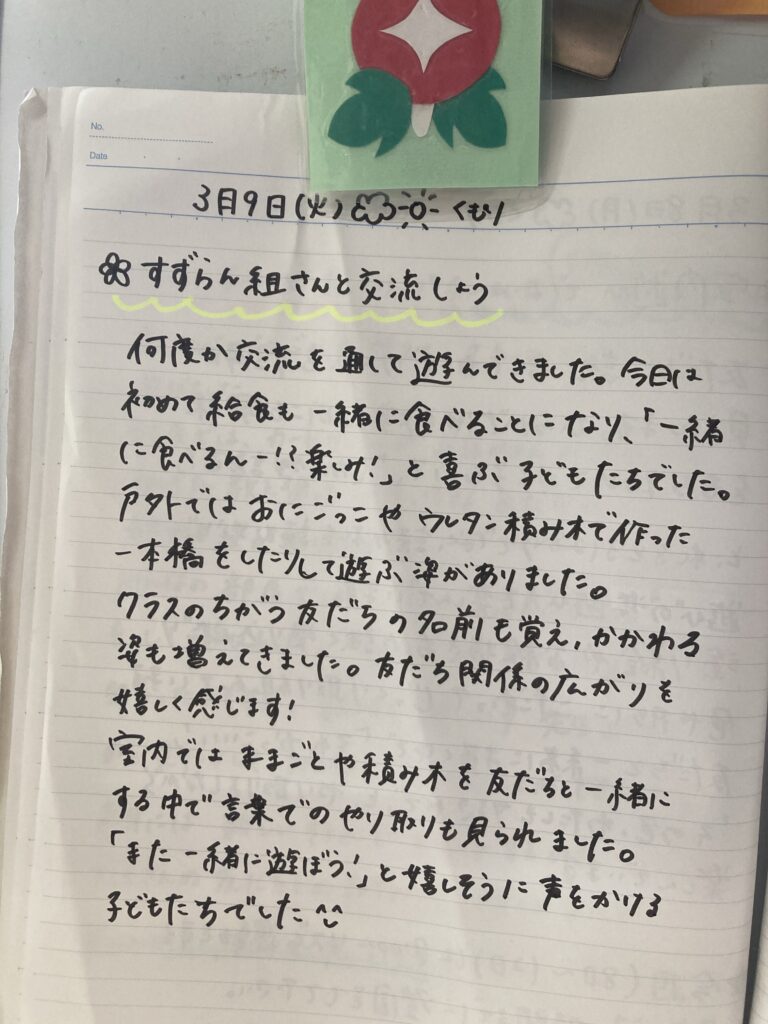 No.
Date
3月9日(火) くもり
すずらん組さんと交流しよう
何度か交流を通して遊んできました。今日は
初めて給食も一緒に食べることになり、「一緒
に食べるんー!?楽しみ!」と喜ぶ子どもたちでした。
戸外ではおにごっこやウレタン積み木で作った
一本橋をしたりして遊ぶ姿がありました。
クラスのちがう友だちの名前も覚え,かかわる
姿も増えてきました。友だち関係の広がりを
嬉しく感じます!
室内ではままごとや積み木を友だちと一緒に
する中で言葉でのやり取りも見られました。
「また一緒に遊ぼう!」と嬉しそうに声をかける
子どもたちでした^^